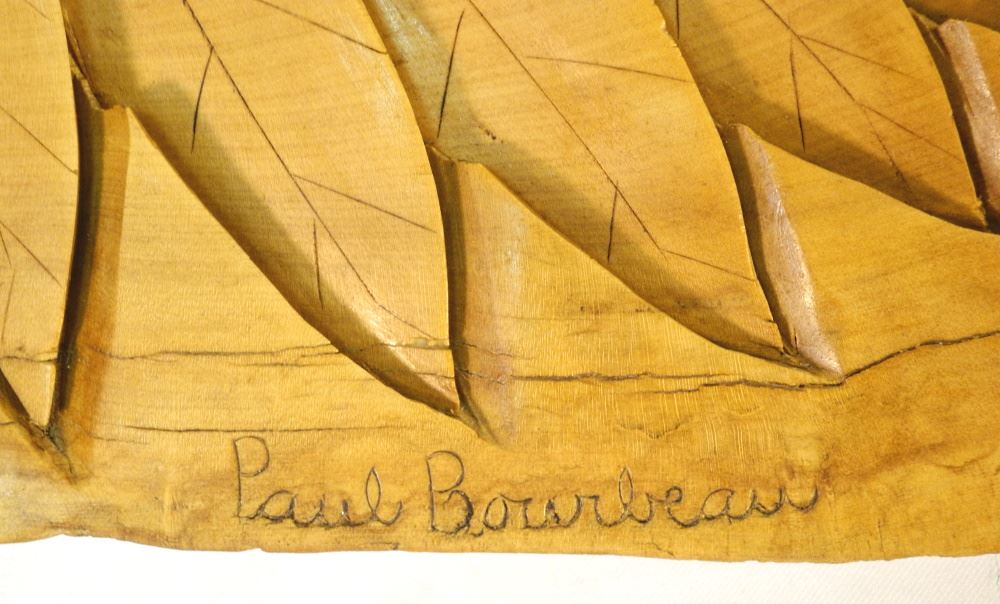 Paul Bourbeau